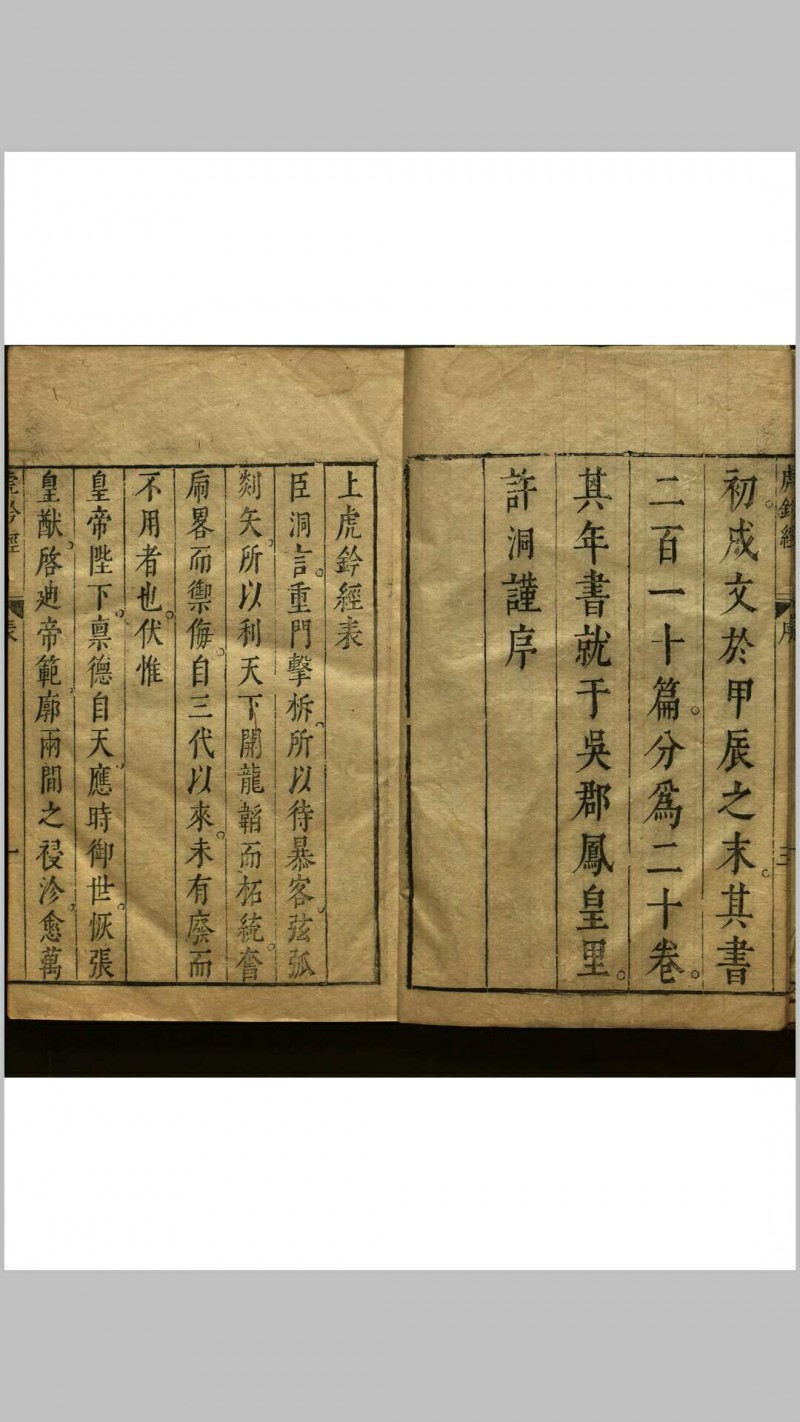 虎鈐經
序
三
初成文於甲辰之末。其書
二百一十篇。分爲二十卷。
其年書就于吳郡鳳皇里。
許洞謹序
上虎鈐經表
臣洞言。重門擊柝。所以待暴客。弦弧
剡矢。所以利天下。開龍韜而柘統。奮
扄畧而禦侮。自三代以來。未有廢而
不用者也。伏惟
皇帝陛下。禀德自天。應時御世。恢張
皇猷。啓廸帝範。廓兩間之祲沴。愈萬
虎鈐經
表
一